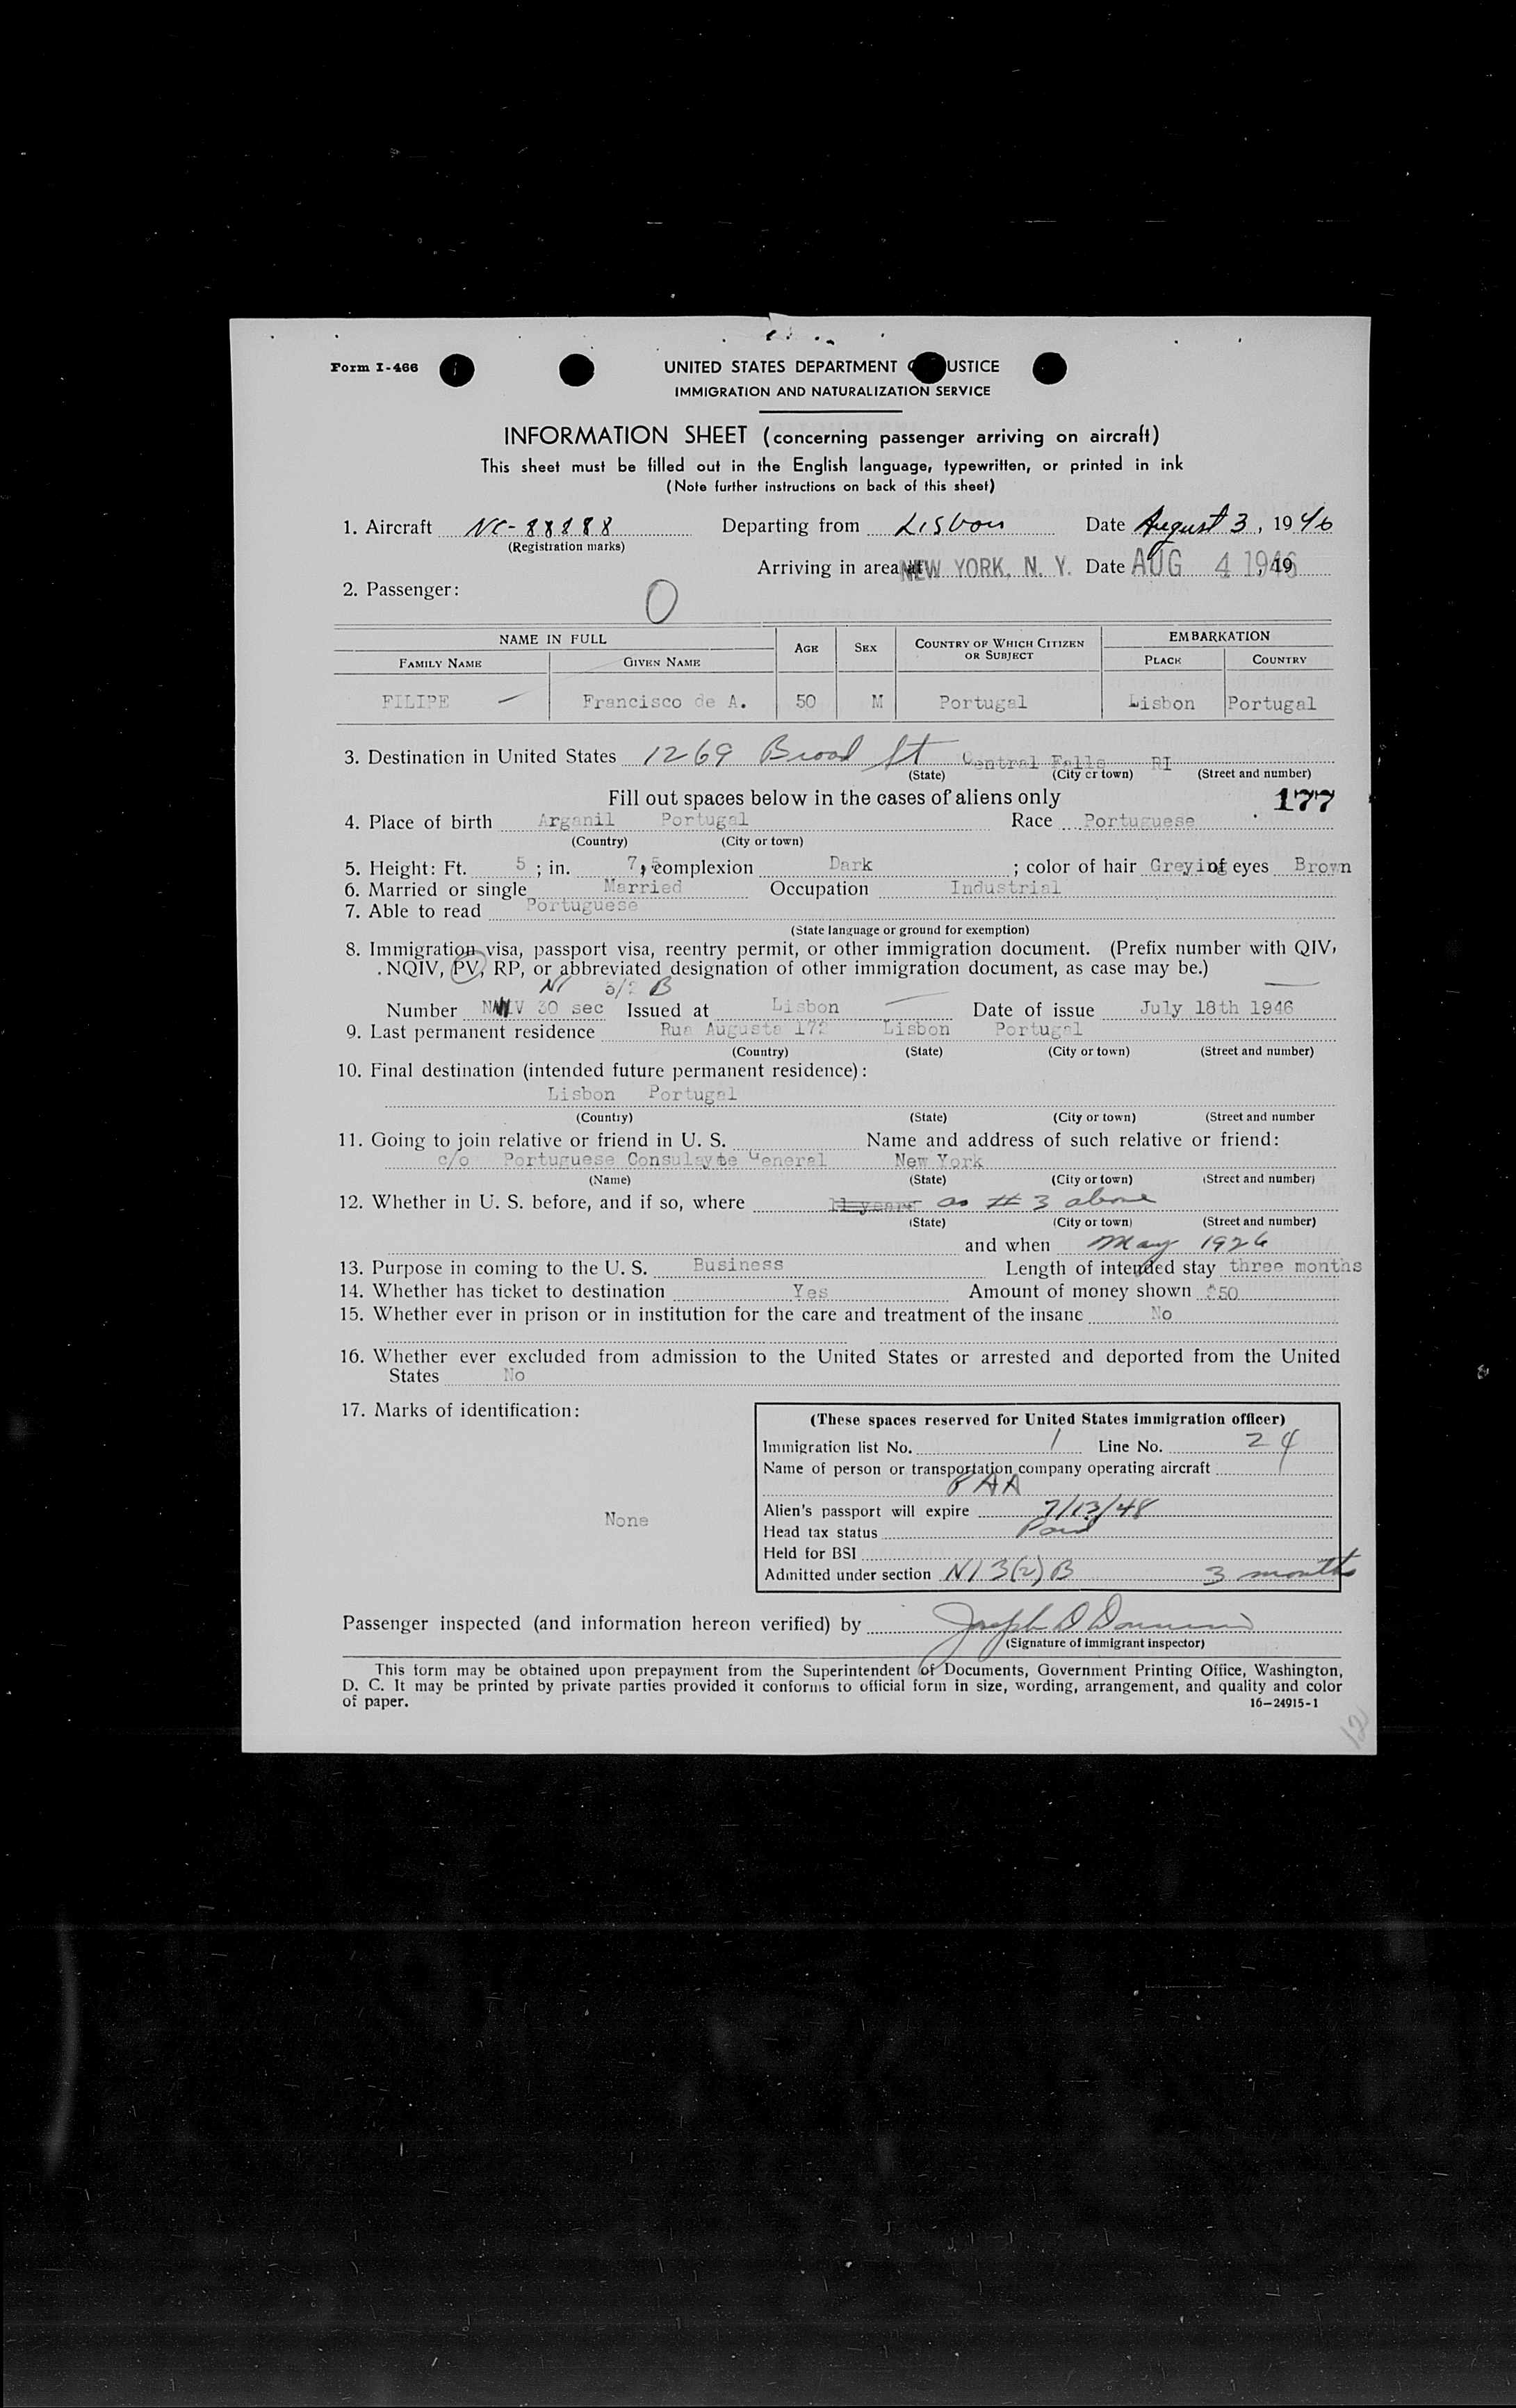 Form I-466
UNITED STATES DEPARTMENT USTICE
IMMIGRATION AND NATURALIZATION SERVICE
INFORMATION SHEET (concerning passenger arriving on aircraft)
This sheet must be filled out in the English language, typewritten, or printed in ink
(Note further instructions on back of this sheet)
1. Aircraft NC-88888 Departing from Lisbon Date August 3, 1946
(Registration marks)
Arriving in area NEW YORK, N. Y. Date AUG 4 1946, 19
2. Passenger: O
NAME IN FULL AGE SEX COUNTRY OF WHICH CITIZEN OR SUBJECT EMBARKATION
FAMILY NAME GIVEN NAME PLACE COUNTRY
FILIPE Francisco de A. 50 M Portugal Lisbon Portugal
3. Destination in United States 1269 Broad St Central Falls RI
(State) (City or town) (Street and number)
Fill out spaces below in the cases of aliens only 177
4. Place of birth Arganil Portugal Race Portuguese
(Country) (City or town)
5. Height: Ft. 5 ; in. 7,5 complexion Dark ; color of hair Greying of eyes Brown
6. Married or single Married Occupation Industrial
7. Able to read Portuguese
(State language or ground for exemption)
8. Immigration visa, passport visa, reentry permit, or other immigration document. (Prefix number with QIV,
NQIV, PV, RP, or abbreviated designation of other immigration document, as case may be.)
NI 3/2 B
Number V 30 sec Issued at Lisbon Date of issue July 18th 1946
9. Last permanent residence Rua Augusta 172 Lisbon Portugal
(Country) (State) (City or town) (Street and number)
10. Final destination (intended future permanent residence):
Lisbon Portugal
(Country) (State) (City or town) (Street and number
11. Going to join relative or friend in U. S. Name and address of such relative or friend:
c/o Portuguese Consulayte General New York
(Name) (State) (City or town) (Street and number)
12. Whether in U. S. before, and if so, where 11 years as # 3 above
(State) (City or town) (Street and number)
and when May 1926
13. Purpose in coming to the U. S. Business Length of intended stay three months
14. Whether has ticket to destination Yes Amount of money shown $50
15. Whether ever in prison or in institution for the care and treatment of the insane No
16. Whether ever excluded from admission to the United States or arrested and deported from the United
States No
17. Marks of identification:
None
(These spaces reserved for United States immigration officer)
Immigration list No. 1 Line No. 24
Name of person or transportation company operating aircraft
PAA
Alien's passport will expire 7/13/48
Head tax status Paid
Held for BSI
Admitted under section NI 3(2) B 3 months
Passenger inspected (and information hereon verified) by Joseph D
(Signature of immigrant inspector)
This form may be obtained upon prepayment from the Superintendent of Documents, Government Printing Office, Washington,
D. C. It may be printed by private parties provided it conforms to official form in size, wording, arrangement, and quality and color
of paper. 16-24915-1